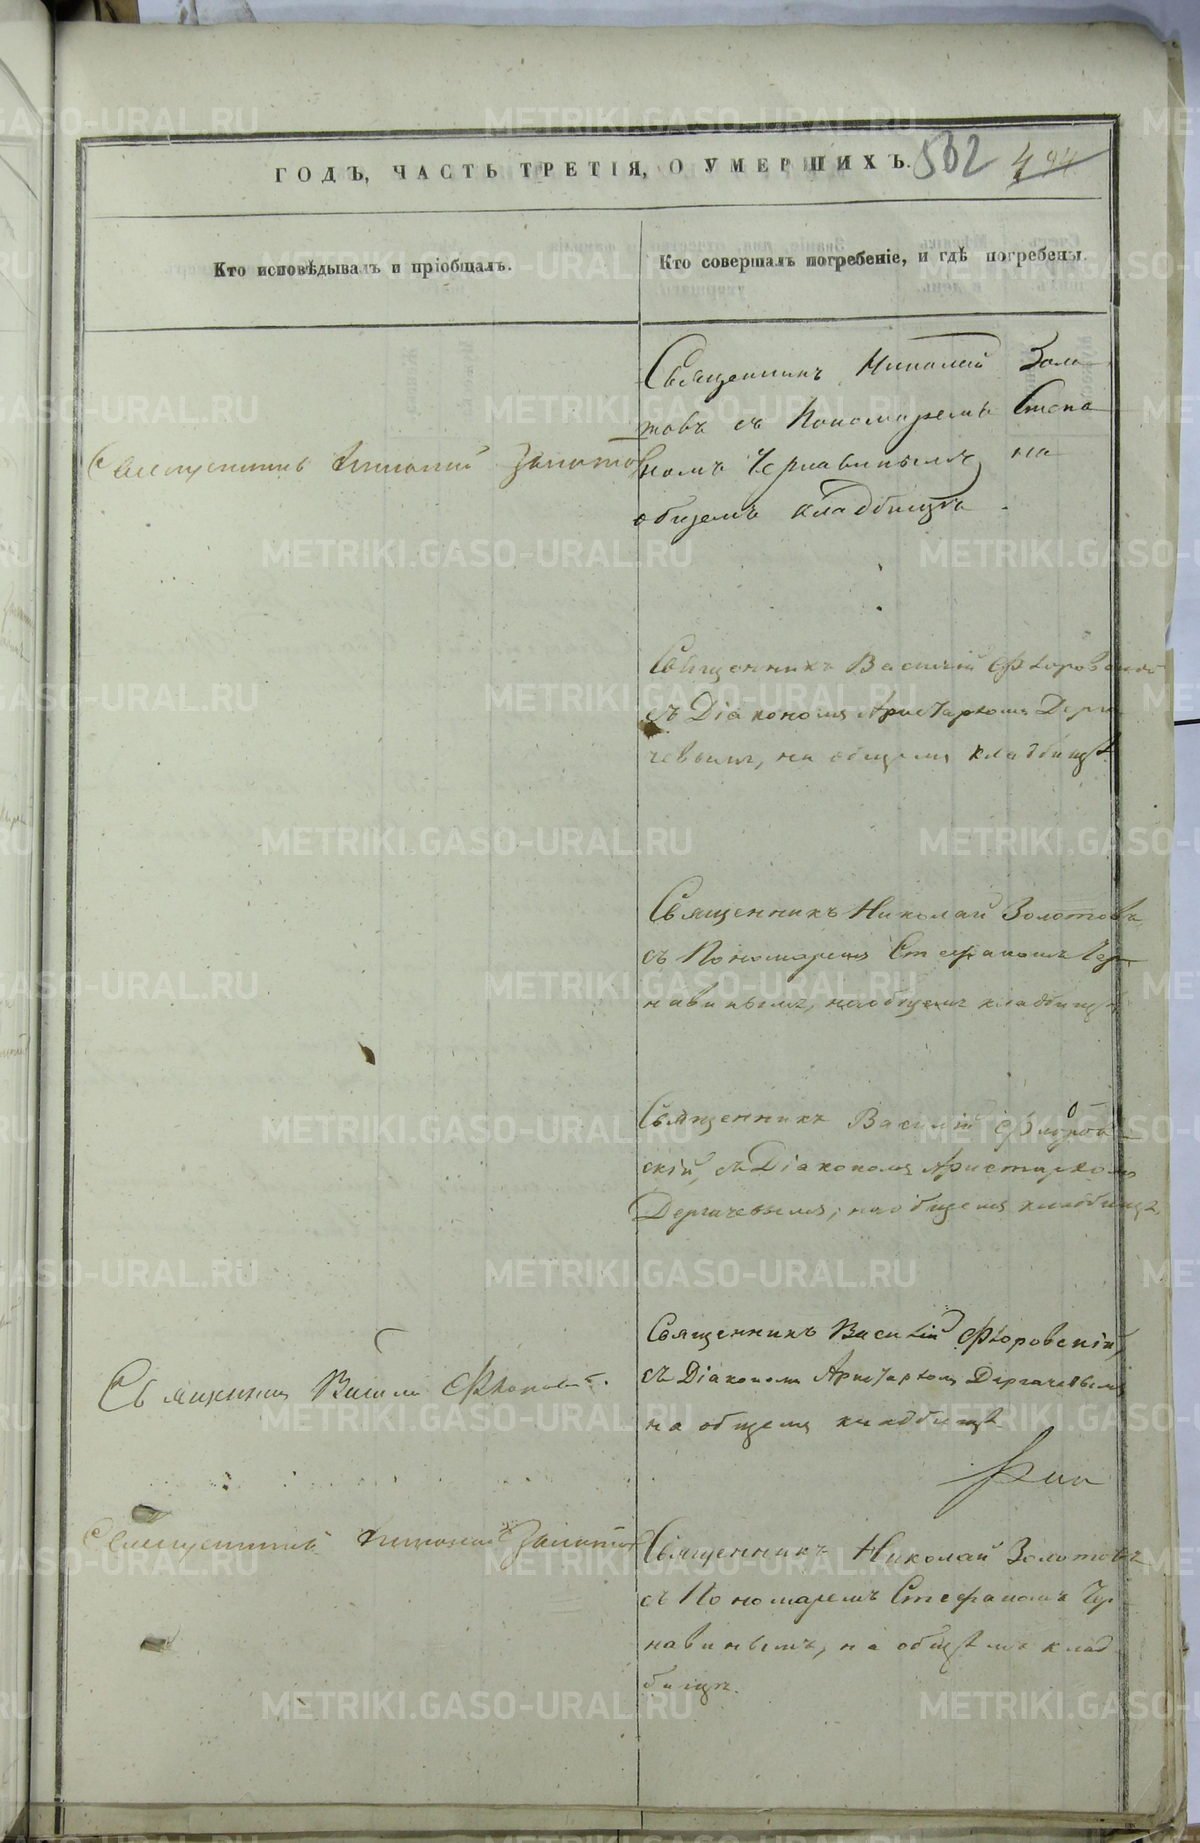 ГОДЪ, ЧАСТЬ ТРЕТІЯ, О УМЕРШИХЪ.
502 494
Кто исповѣдывалъ и пріобщалъ.
Кто совершалъ погребеніе, и гдѣ погребены.
Священникъ Николай Золо
товъ съ Пономаремъ Стефа
Священникъ Николай Золотов
номъ Чернавинымъ на
общемъ кладбищѣ.
Священникъ Василій Флоровскій
съ Діакономъ Аристархомъ Дерга
чевымъ, на общемъ кладбищѣ.
Священникъ Николай Золотовъ
съ Пономаремъ Стефаномъ Чер
навинымъ, на общемъ кладбищѣ
Священникъ Василій Флоров
скій, съ Діакономъ Аристархомъ
Дергачевымъ, на общемъ кладбищѣ
Священникъ Василій Флоровскій,
Священникъ Василій Флоровскі.
съ Діакономъ Аристархомъ Дергачевымъ
на общемъ кладбищѣ
Священникъ Николай Золотов
Священникъ Николай Золотовъ
съ Пономаремъ Стефаномъ Чер
навинымъ, на общемъ клад
бищѣ.
METRIKI.GASO-URAL.RU